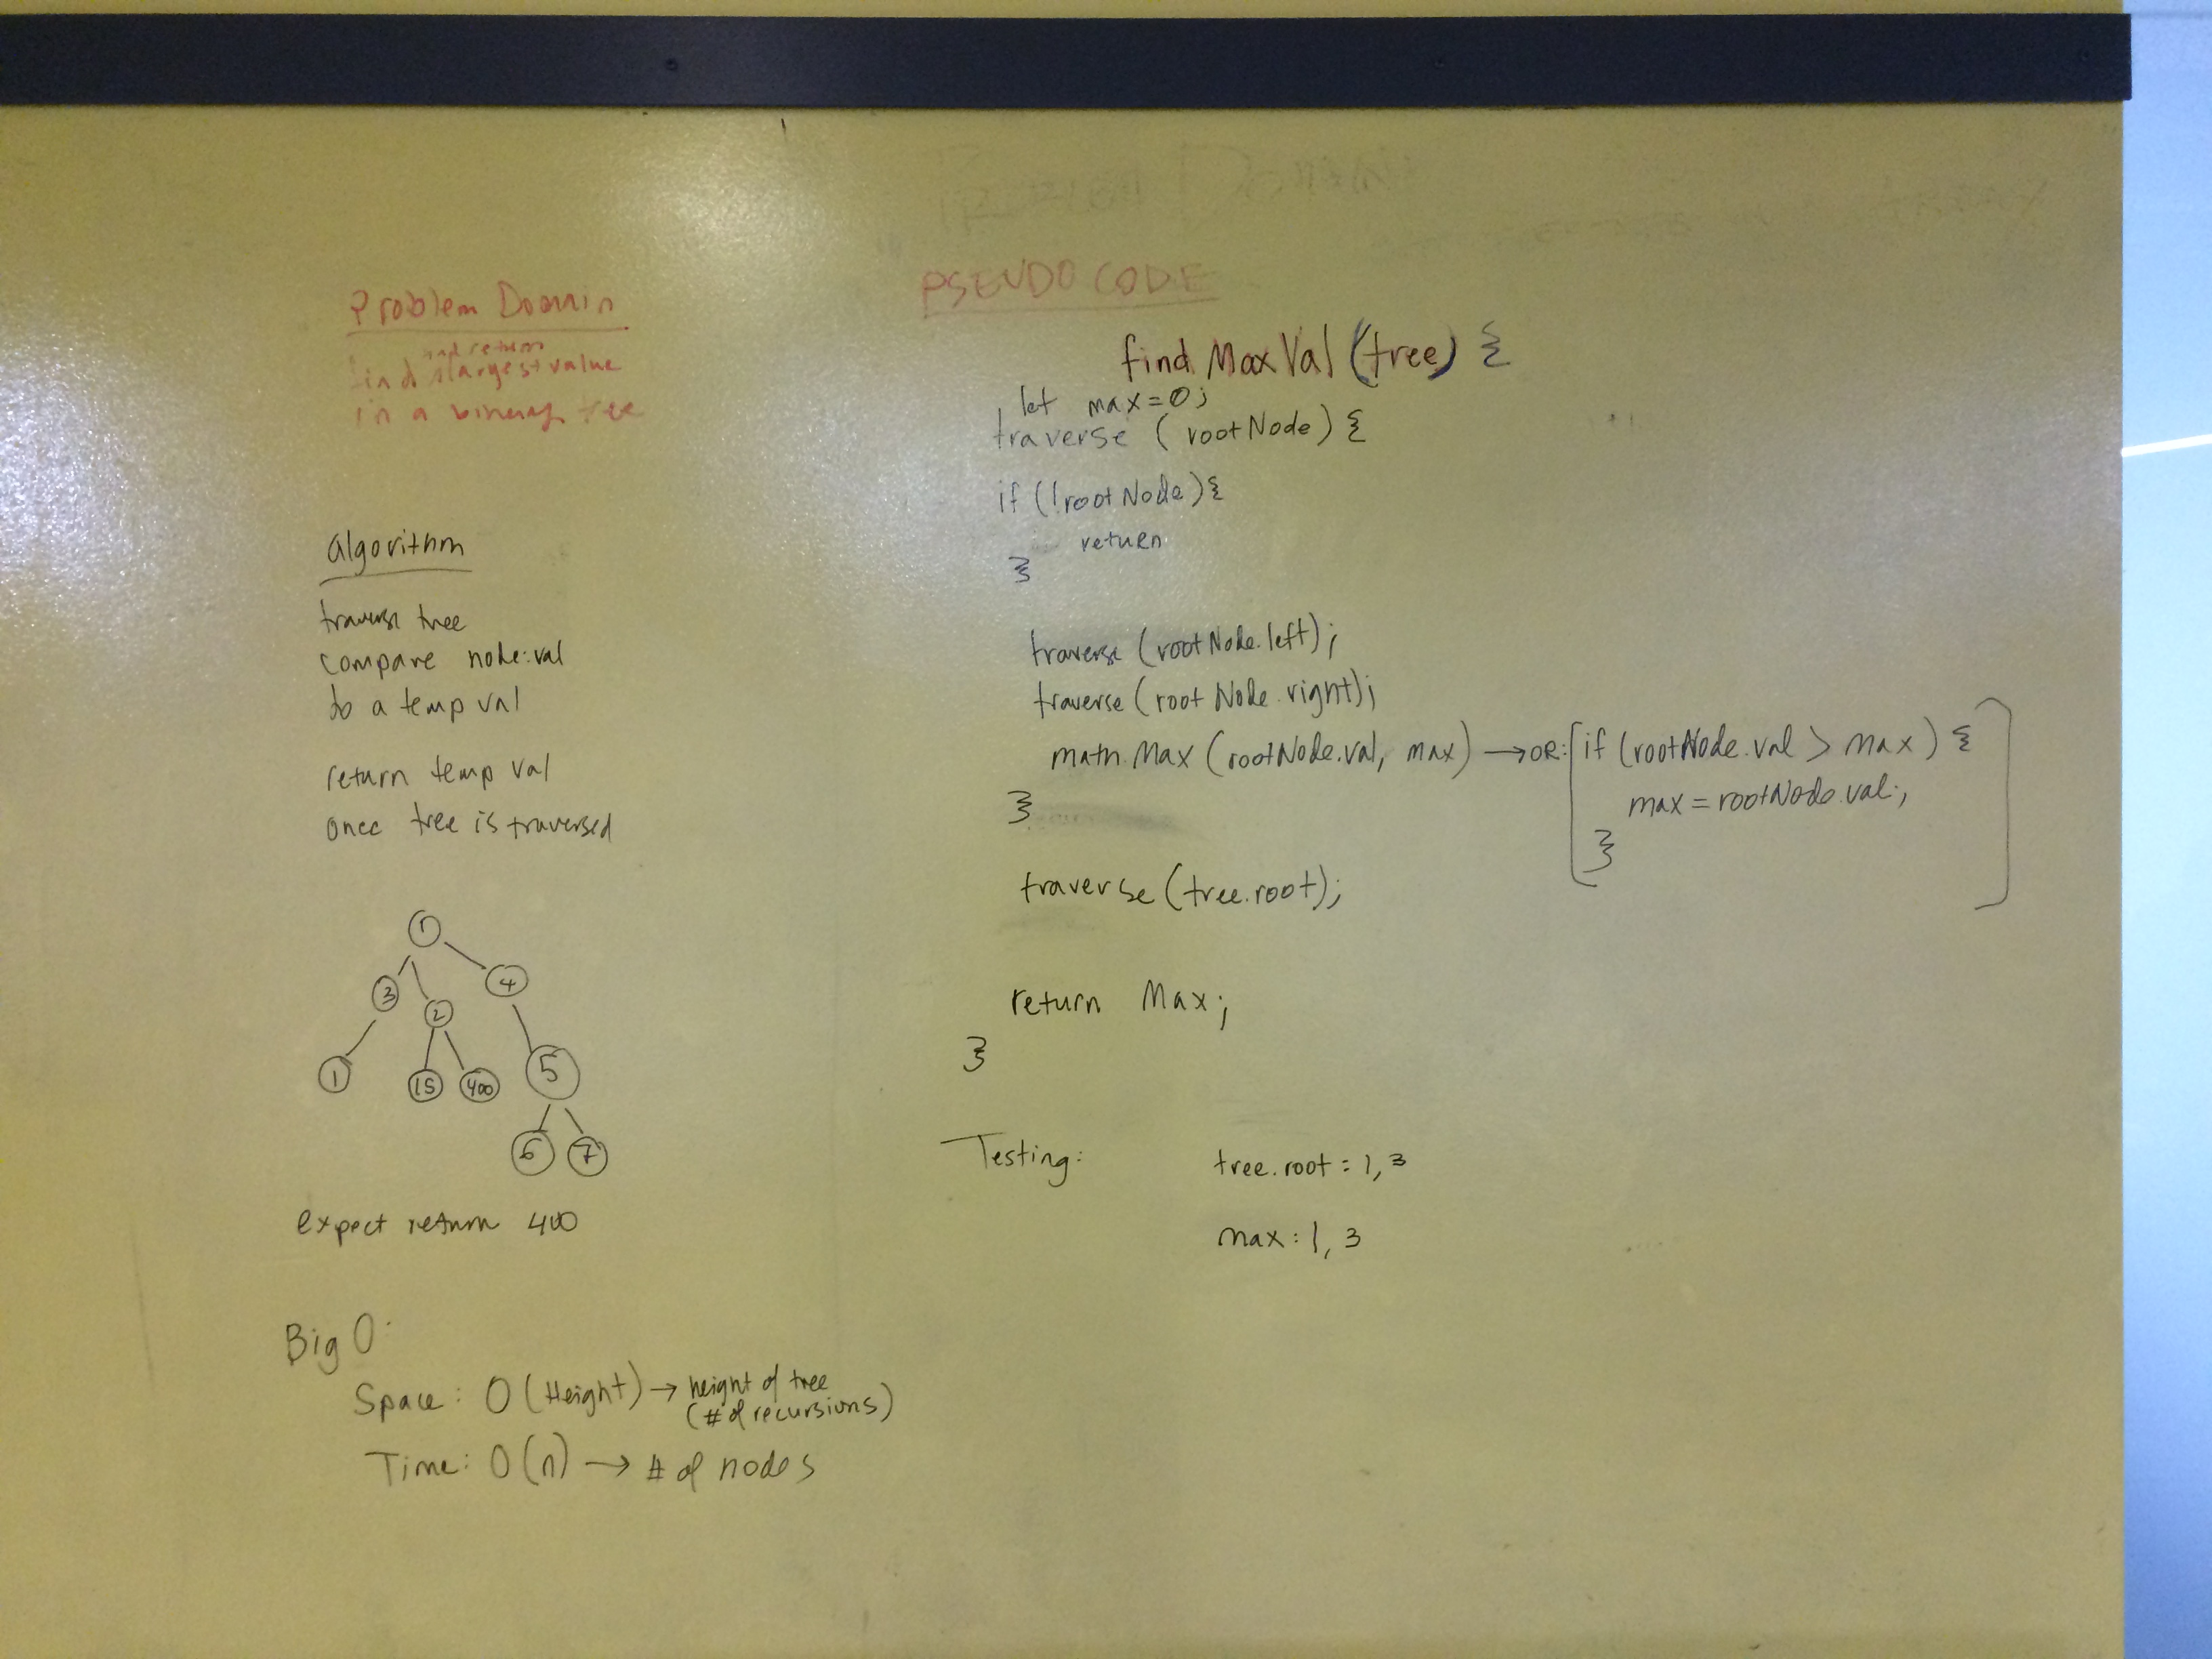 Problem Domain
and return
find largest value
in a binary tree
algorithm
traverse tree
compare node.val
to a temp val
return temp val
once tree is traversed
1
3 4
2
1 15 400 5
6 7
expect return 400
Big O:
Space: O (Height) → height of tree
(# of recursions)
Time: O(n) → # of nodes
PSEUDO CODE
find MaxVal (tree) {
let max=0;
traverse (rootNode) {
if (!rootNode){
return
}
traverse (rootNode.left);
traverse (rootNode.right);
math.Max (rootNode.val, max) → OR: [if (rootNode.val > max) {
max = rootNode.val;
} ]
}
traverse (tree.root);
return Max;
}
Testing: tree.root: 1, 3
max: 1, 3